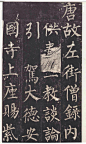 唐故左街僧錄内
供奉三教談論
引駕大德安
國寺上座賜紫